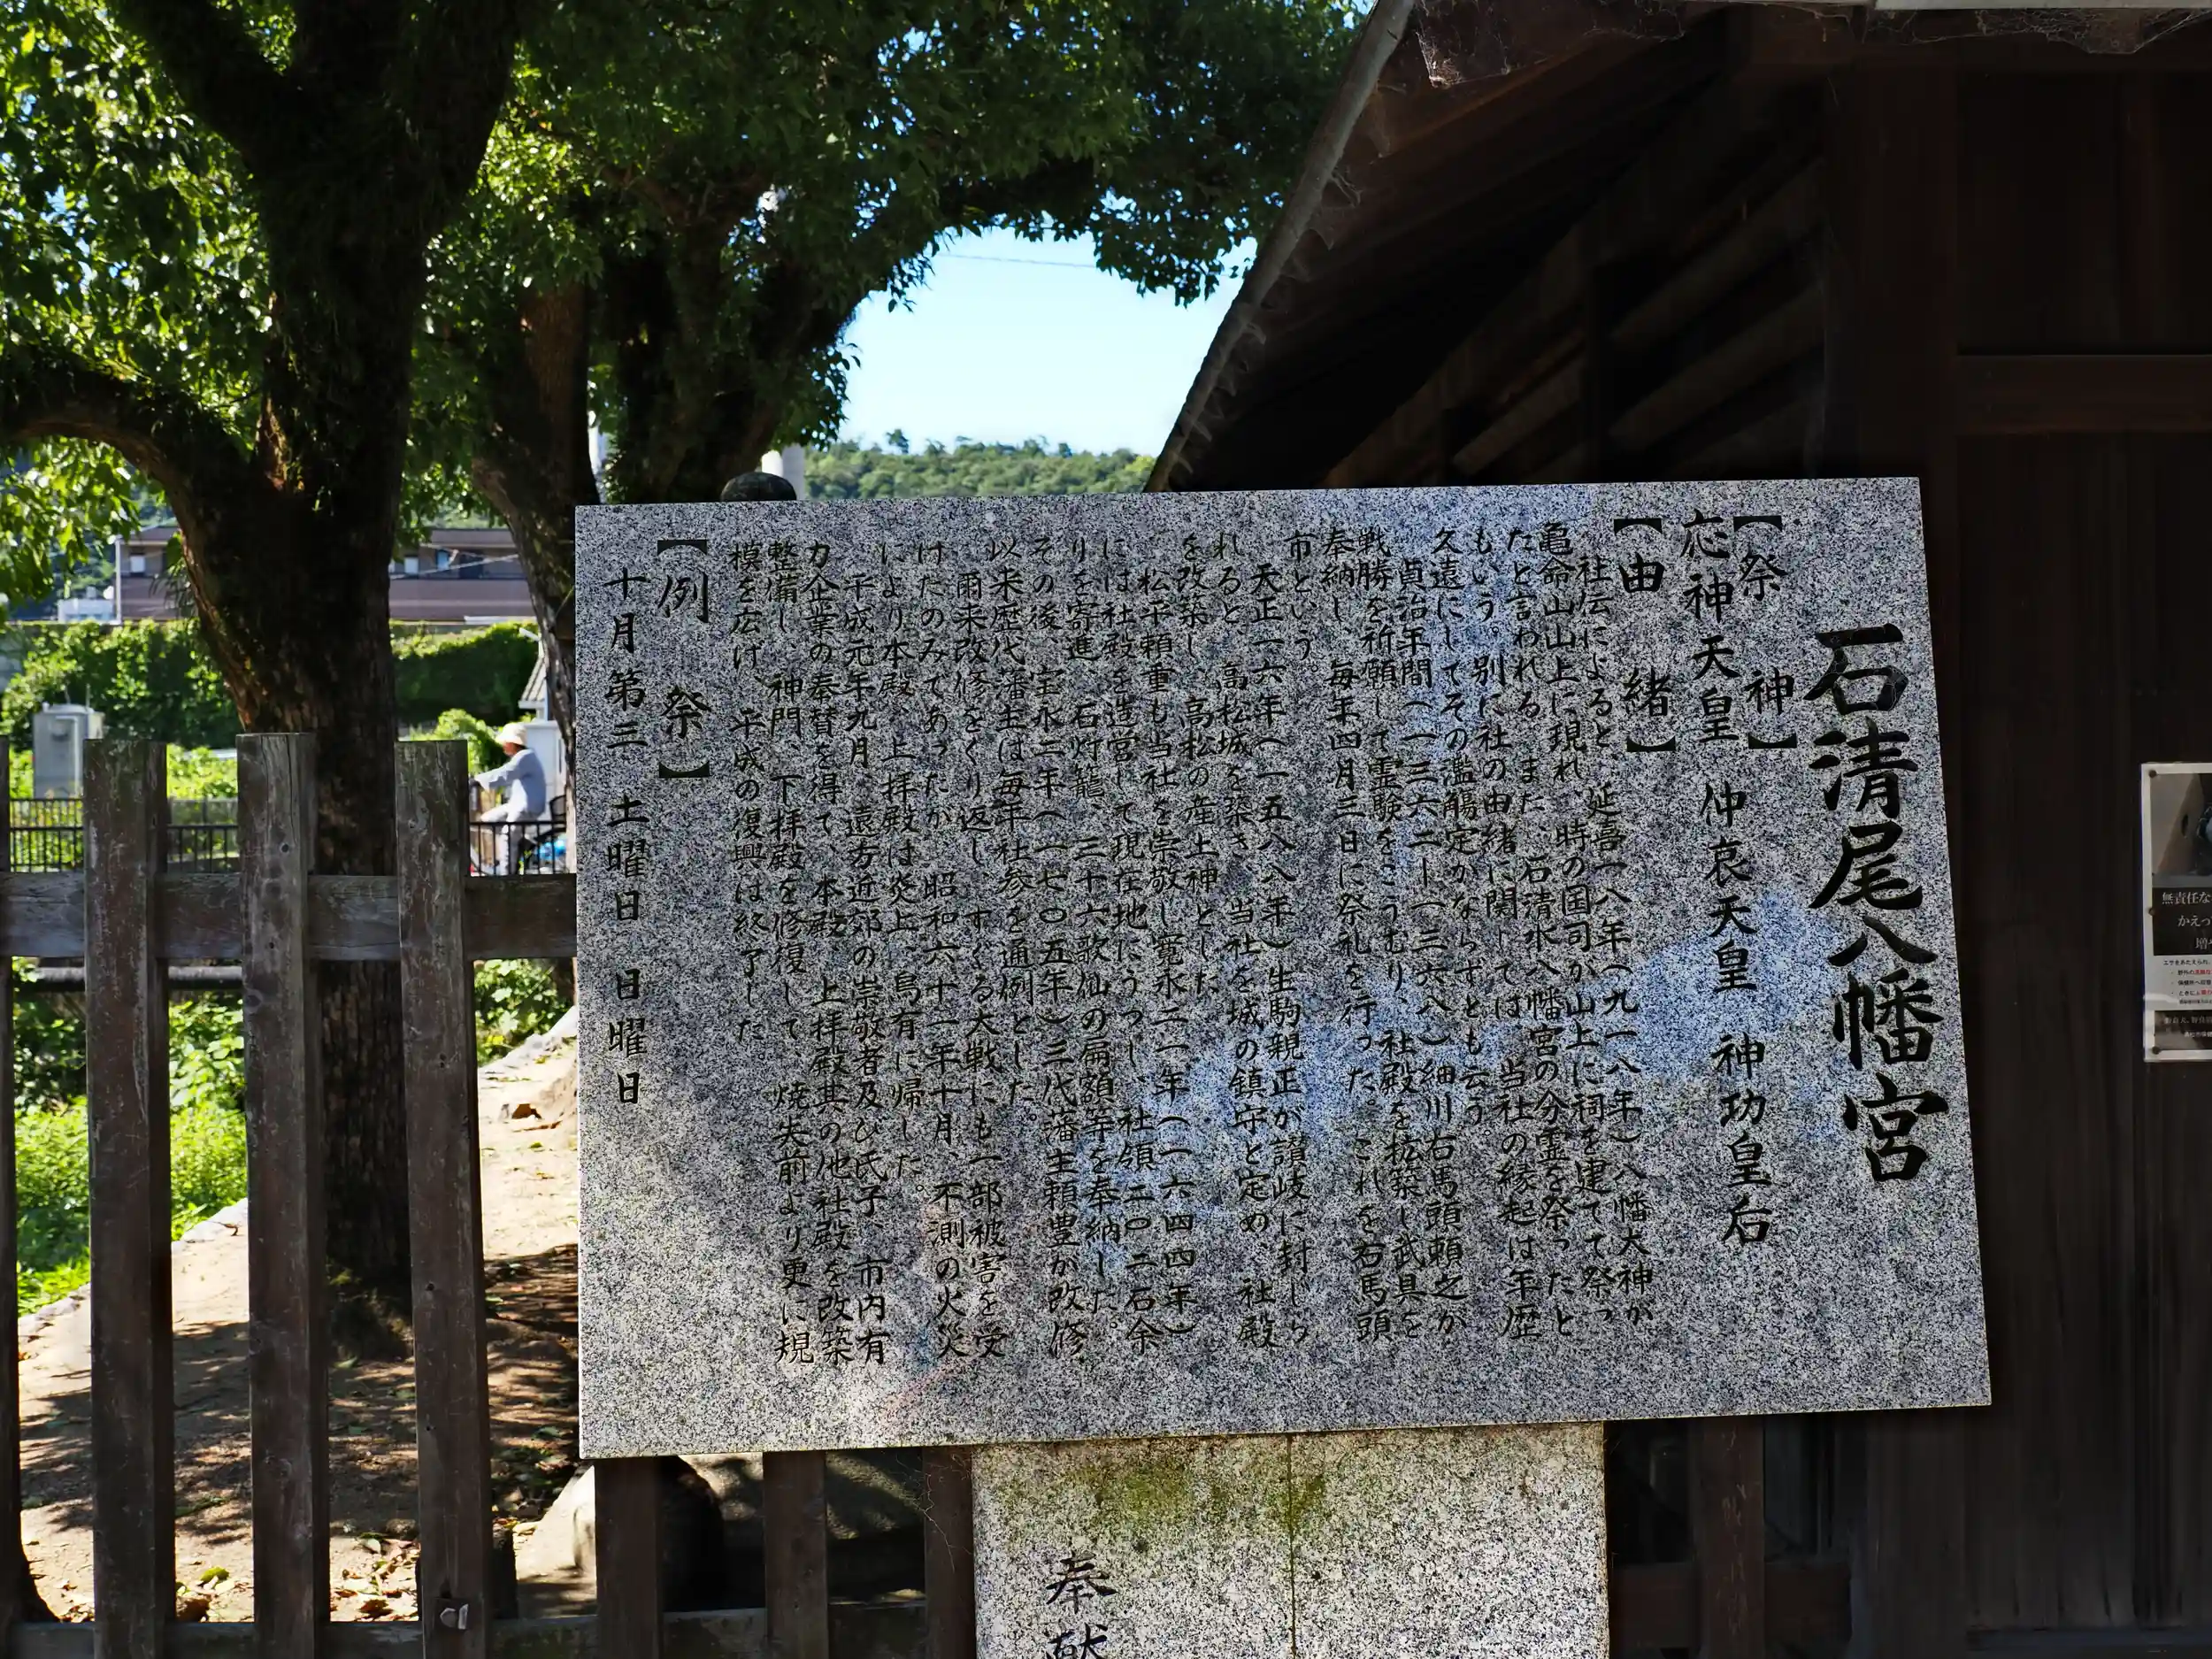 石清尾八幡宮
【祭神】
応神天皇 仲哀天皇 神功皇后
【由緒】
社伝によると、延喜一八年(九一八年)八幡大神が
亀命山山上に現れ、時の国司が山上に祠を建てて祭っ
たと言われる。また、石清水八幡宮の分霊を祭ったと
もいう。別に社の由緒に関しては、当社の縁起は年歴
久遠にしてその濫觴定かならずとも云う。
貞治年間(一三六二ー一三六八)細川右馬頭頼之が
戦勝を祈願して霊験をこうむり、社殿を拡築し武具を
奉納し、毎年四月三日に祭礼を行った。これを右馬頭
市という。
天正一六年(一五八八年)生駒親正が讃岐に封じら
れると、高松城を築き、当社を城の鎮守と定め、社殿
を改築し、高松の産土神とした。
松平頼重も当社を崇敬し寛永二一年(一六四四年)
には社殿を造営して現在地にうつし、社領二〇二石余
りを寄進、石灯籠、三十六歌仙の扁額等を奉納した。
その後、宝永二年(一七〇五年)三代藩主頼豊が改修
以来歴代藩主は毎年社参を通例とした。
爾来改修をくり返し、すぐる大戦にも一部被害を受
けたのみであったが、昭和六十二年十月、不測の火災
により本殿、上拝殿は炎上、烏有に帰した。
平成元年九月、遠方近郊の崇敬者及び氏子、市内有
力企業の奉賛を得て、本殿、上拝殿其の他社殿を改築
整備し、神門、下拝殿を修復して、焼失前より更に規
模を広げ、平成の復興は終了した。
【例祭】
十月第三土曜日・日曜日
奉献
無責任な
かえっ
増